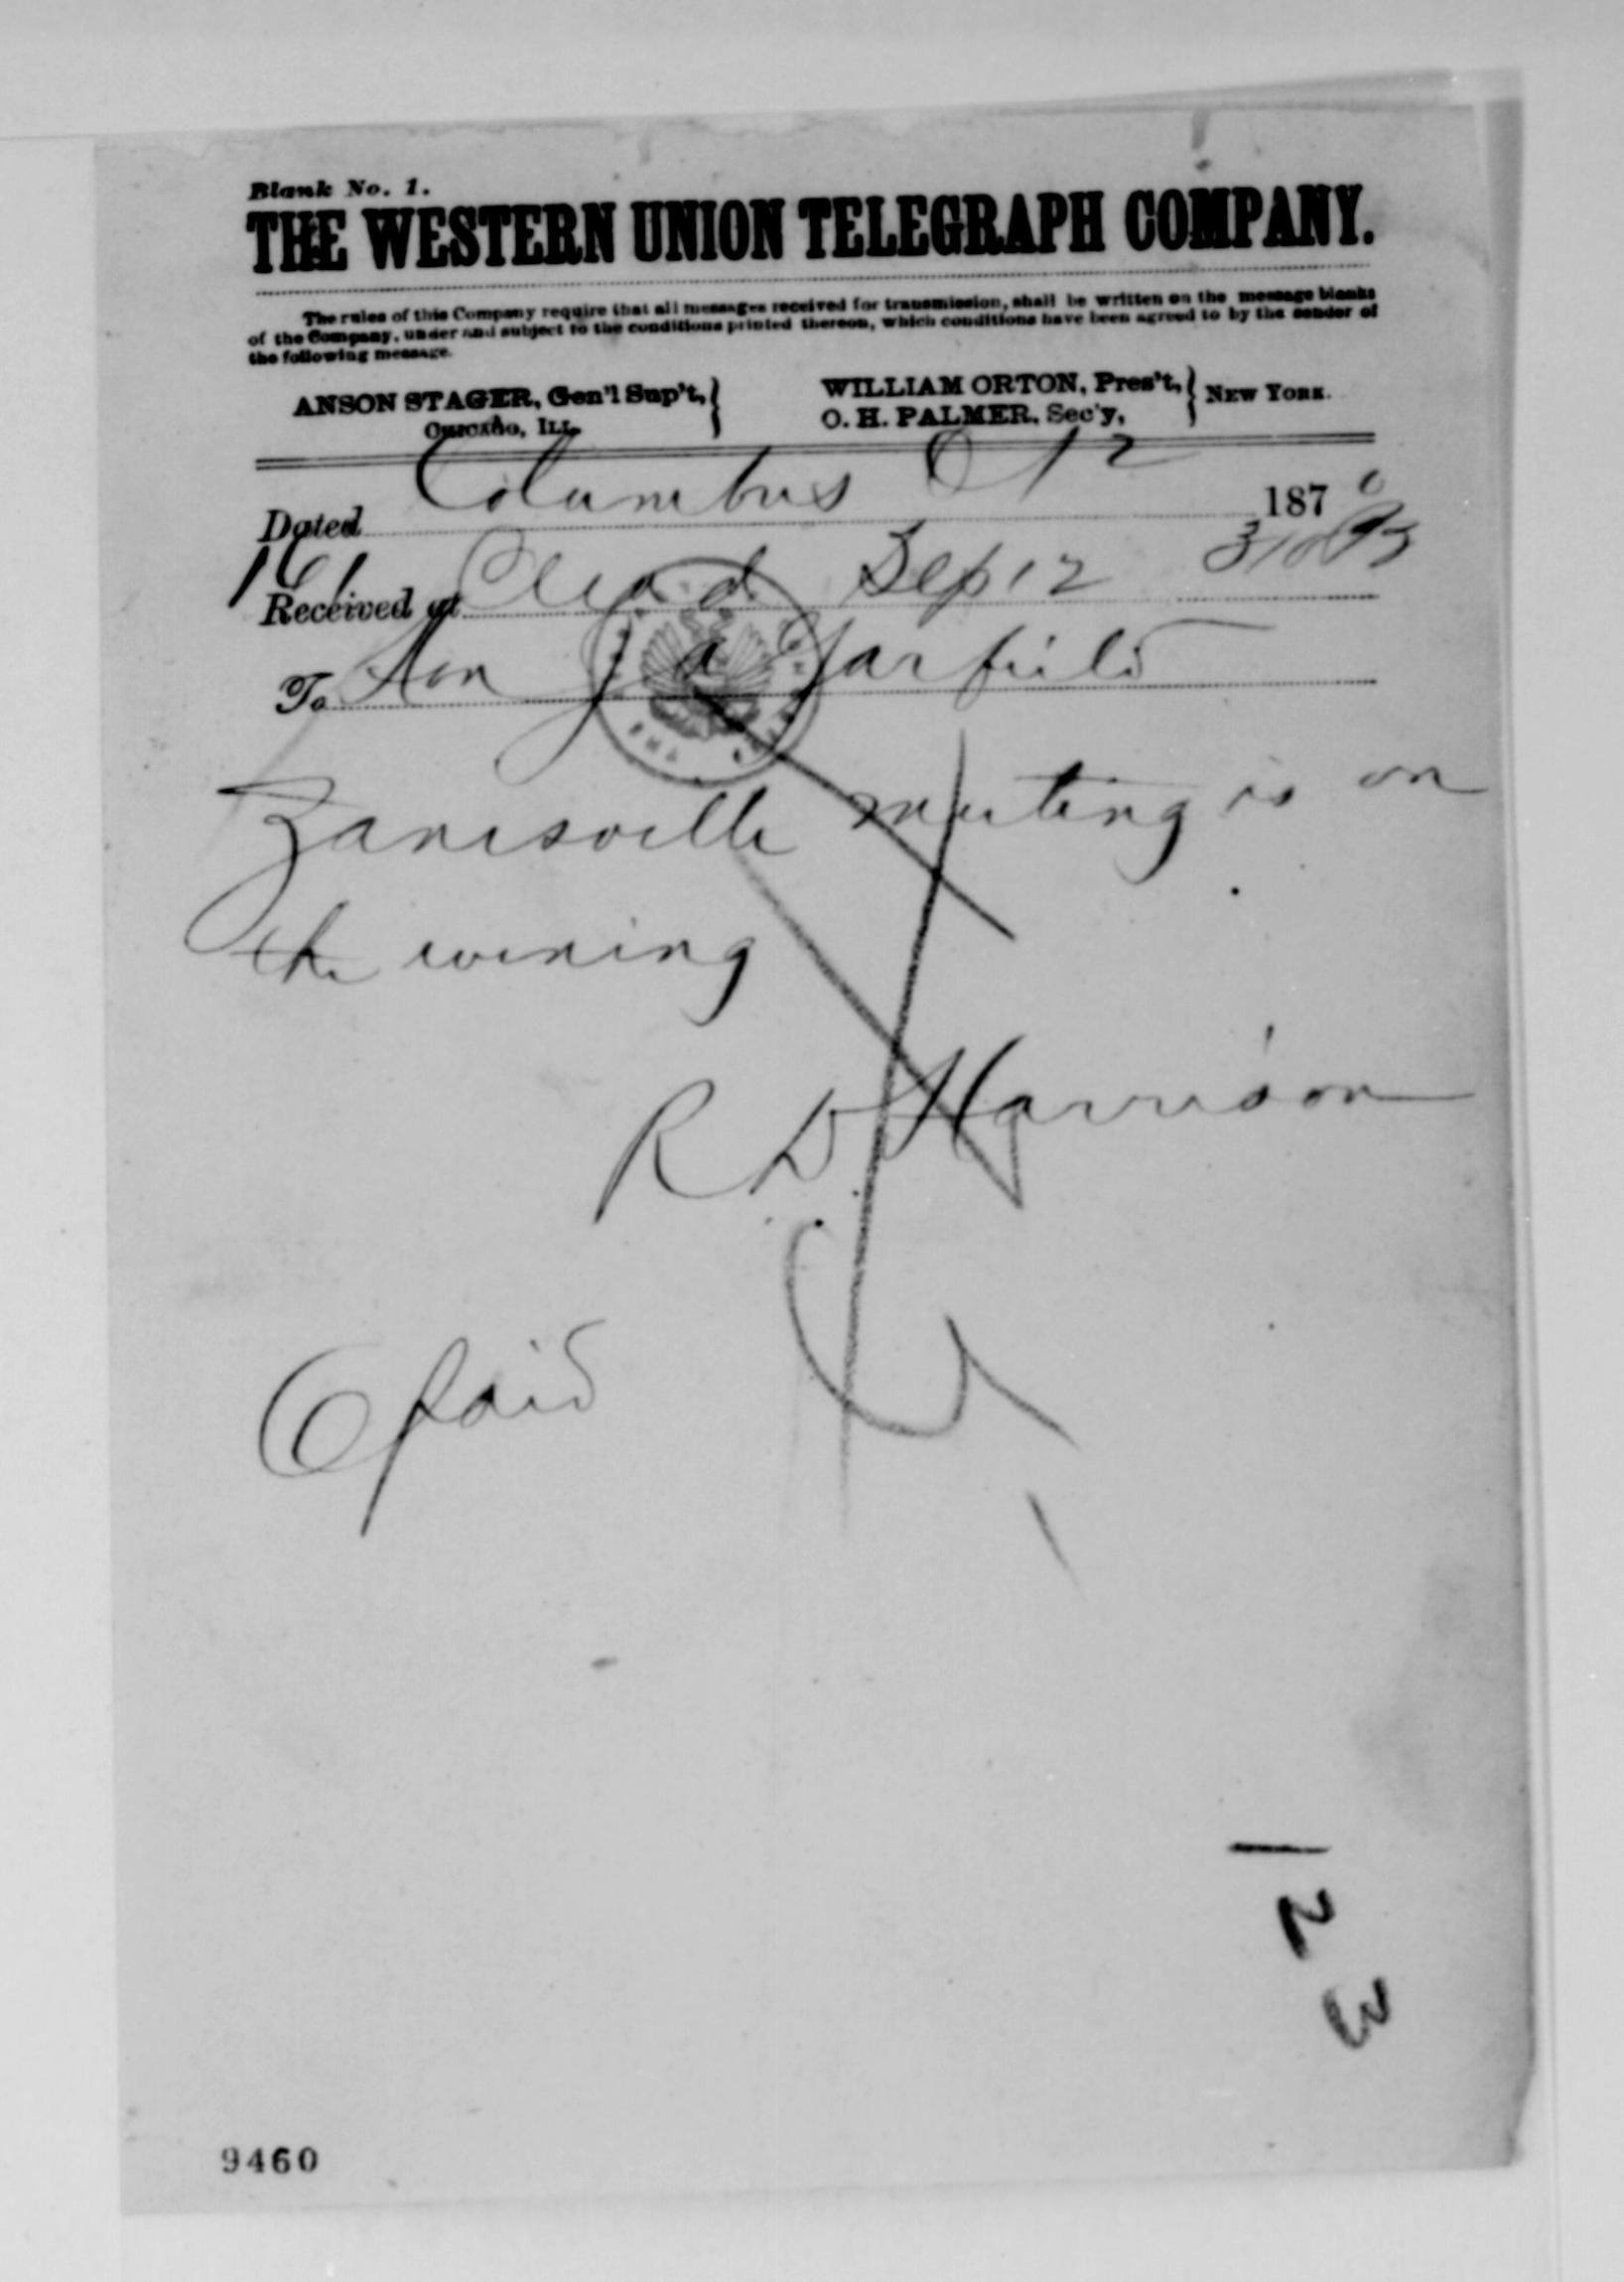 Blank No. 1.
THE WESTERN UNION TELEGRAPH COMPANY.
The rules of this Company require that all messages received for transmission, shall be written on the message blanks
of the Company, under and subject to the conditions printed thereon, which conditions have been agreed to by the sender of
the following message.
ANSON STAGER, Gen'l Sup't, CHICAGO, ILL.
WILLIAM ORTON, Pres't, O. H. PALMER, Sec'y, NEW YORK.
Dated Columbus O 12 1870
Received at Sep 12
To Hon J a Garfield
Zanesville meeting is on
the evening
R D Harrison
6 paid
123
9460